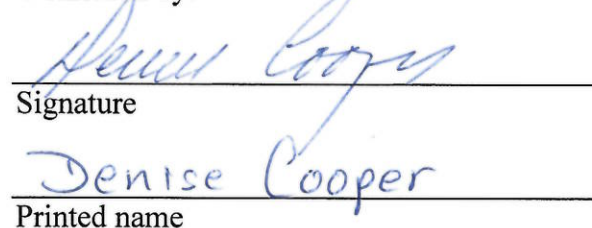 Denise Cooper
Signature
Denise Cooper
Printed name